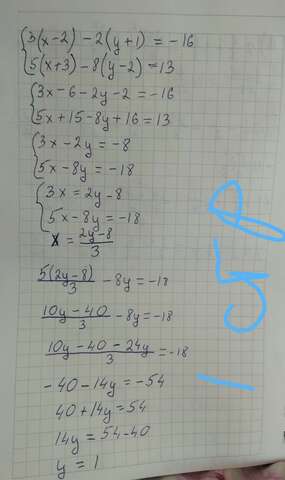 3(x-2)-2(y+1)=-16
5(x+3)-8(y-2)=13
3x-6-2y-2=-16
5x+15-8y+16=13
3x-2y=-8
5x-8y=-18
3x=2y-8
5x-8y=-18
x=\frac{2y-8}{3}
\frac{5(2y-8)}{3}-8y=-18
\frac{10y-40}{3}-8y=-18
\frac{10y-40-24y}{3}=-18
-40-14y=-54
40+14y=54
14y=54-40
y=1